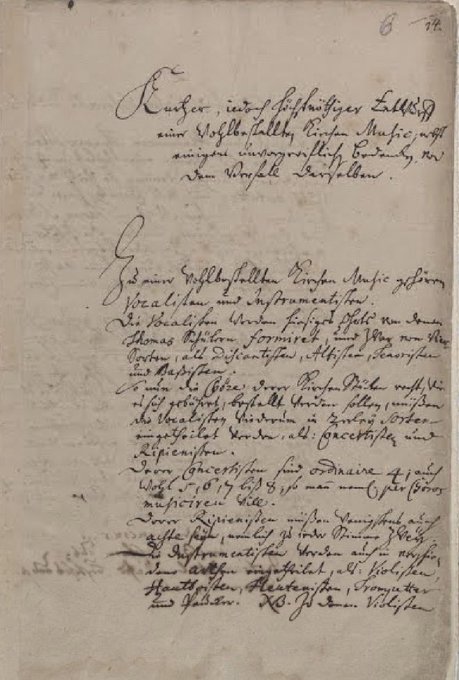 14.
Kurtzer, iedoch höchstnöthiger Entwurff
einer wohlbestallten Kirchen Music, nebst
einigem unvorgreiflichen Bedencken von
dem Verfall derselben.
Zu einer wohlbestellten Kirchen Music gehören
Vocalisten und Instrumentisten.
Die Vocalisten werden hiesiges Ohrts von denen
Thomas Schülern formiret, und zwar von vier
Sorten, als Discantisten, Altisten, Tenoristen
und Baßisten.
So nun die Chöre derer Kirchen Stücken recht, wie
es sich gebühret, bestellt werden sollen, müßen
die Vocalisten wiederum in 2erley Sorten
eingetheilet werden, als: Concertisten und
Ripienisten.
Derer Concertisten sind ordinaire 4; auch
wohl 5, 6, 7 biß 8; so mann nemlich per Choros
musiciren will.
Derer Ripienisten müßen wenigstens auch
achte seyn, nemlich zu ieder Stimme zwey.
Die Instrumentisten werden auch in verschie-
dene arthen eingetheilet, als: Violisten,
Hautboisten, Fleutenisten, Trompetter
und Paucker. NB. Zu denen Violisten